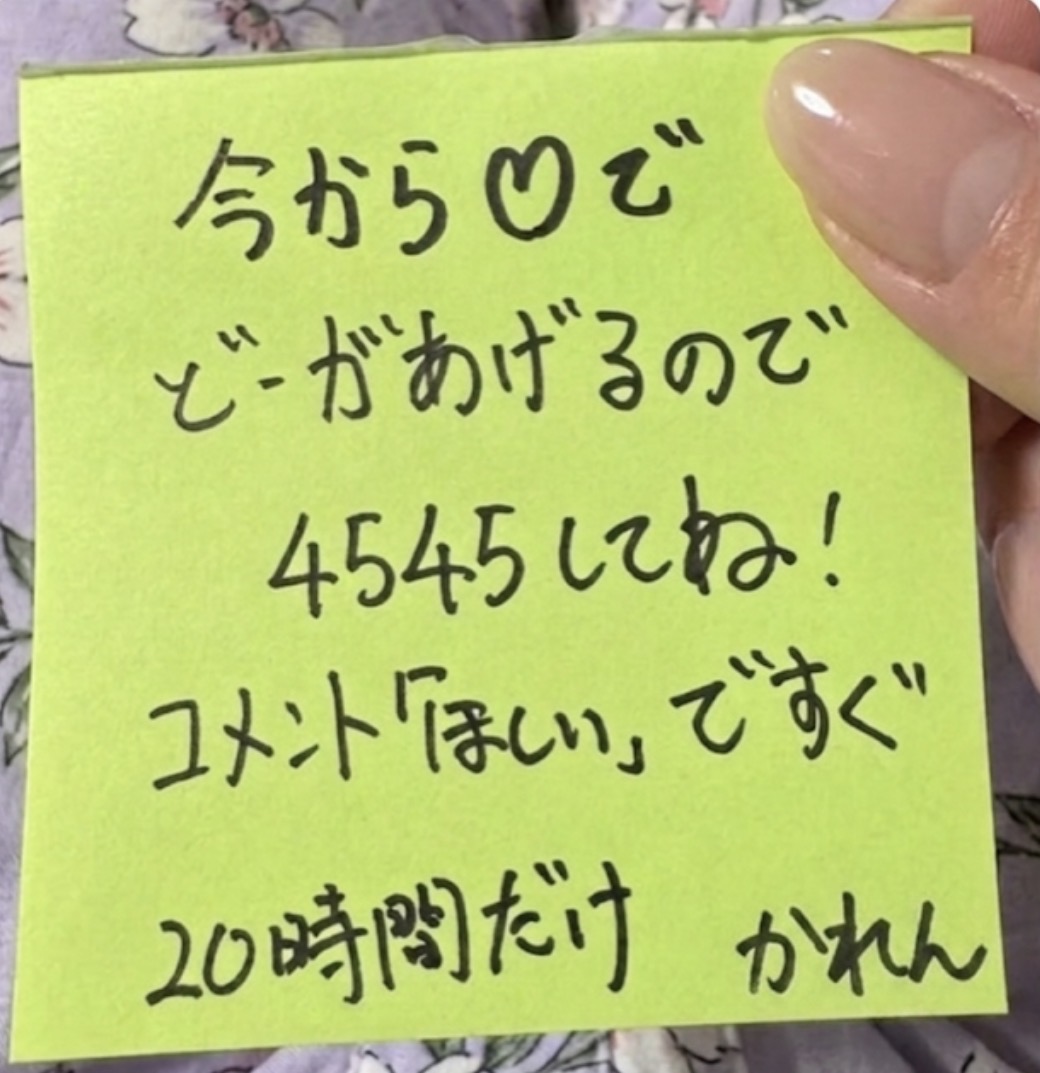 今から♡で
どーがあげるので
4545してね！
コメント「ほしい」ですぐ
20時間だけ かれん